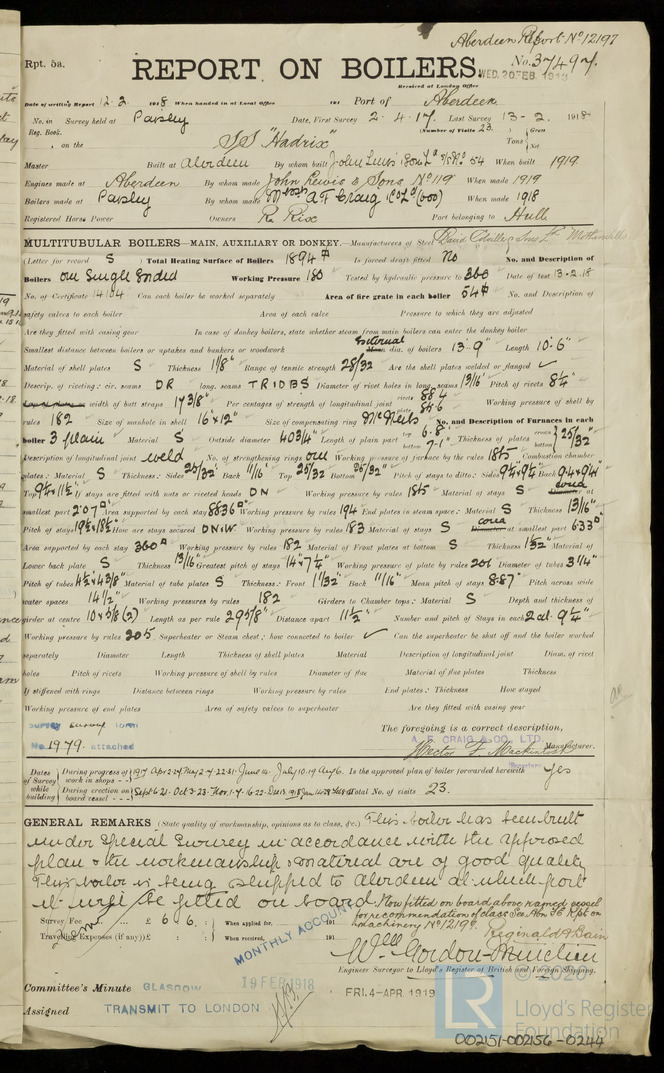 Aberdeen Report No 12197
Rpt. 5a.
No. 37497
REPORT ON BOILERS.
WED. 20 FEB. 1918
Received at London Office
Date of writing Report 12.2 1918 When handed in at Local Office 191 Port of Aberdeen
No. in Survey held at Paisley Date, First Survey 2.4.17. Last Survey 13-2. 1918
Reg. Book. (Number of Visits 23.)
on the SS "Hadrix" Tons Gross Net
Master Built at Aberdeen By whom built John Lewis When built 1919
Engines made at Aberdeen By whom made John Lewis & Sons No 119 When made 1919
Boilers made at Paisley By whom made Messrs A F Craig When made 1918
Registered Horse Power Owners R. Rix Port belonging to Hull
MULTITUBULAR BOILERS—MAIN, AUXILIARY OR DONKEY.—Manufacturers of Steel David Colville & Sons Ld Motherwell
(Letter for record S) Total Heating Surface of Boilers 1894 Is forced draft fitted No No. and Description of
Boilers One Single Ended Working Pressure 180 Tested by hydraulic pressure to 360 Date of test 13-2-18
No. of Certificate 14104 Can each boiler be worked separately Area of fire grate in each boiler 54 No. and Description of
safety valves to each boiler Area of each valve Pressure to which they are adjusted
Are they fitted with easing gear In case of donkey boilers, state whether steam from main boilers can enter the donkey boiler
Smallest distance between boilers or uptakes and bunkers or woodwork Internal dia. of boilers 13'-9" Length 10'-6"
Material of shell plates S Thickness 1 1/8" Range of tensile strength 28/32 Are the shell plates welded or flanged
Descrip. of riveting: cir. seams DR long. seams TRIDBS Diameter of rivet holes in long. seams 1 3/16" Pitch of rivets 8 1/4"
width of butt straps 17 3/8" Per centages of strength of longitudinal joint rivets 88.4 plate 85.6 Working pressure of shell by
rules 182 Size of manhole in shell 16"x12" Size of compensating ring McNeils No. and Description of Furnaces in each
boiler 3 plain Material S Outside diameter 40 3/4" Length of plain part top 6'-8" bottom 7'-1" Thickness of plates crown bottom 25/32"
Description of longitudinal joint weld No. of strengthening rings one Working pressure of furnace by the rules 185 Combustion chamber
plates: Material S Thickness: Sides 25/32" Back 11/16" Top 25/32 Bottom 25/32" Pitch of stays to ditto: Sides 9 1/4x9 1/4" Back 9 1/4x9 1/4"
Top 9 1/4x11 1/2 If stays are fitted with nuts or riveted heads DN Working pressure by rules 185 Material of stays S at
smallest part 2.07 Area supported by each stay 88.36 Working pressure by rules 194 End plates in steam space: Material S Thickness 1 3/16"
Pitch of stays 19 1/2x18 1/2" How are stays secured DN&W Working pressure by rules 183 Material of stays S at smallest part 6.33
Area supported by each stay 360 Working pressure by rules 182 Material of Front plates at bottom S Thickness 1 1/32" Material of
Lower back plate S Thickness 13/16" Greatest pitch of stays 14"x7 1/4" Working pressure of plate by rules 201 Diameter of tubes 3 1/4"
Pitch of tubes 4 1/2x4 3/8" Material of tube plates S Thickness: Front 1 1/32 Back 11/16" Mean pitch of stays 8.87" Pitch across wide
water spaces 14 1/2" Working pressures by rules 182 Girders to Chamber tops: Material S Depth and thickness of
girder at centre 10x5/8 (2) Length as per rule 29 5/8" Distance apart 11 1/2" Number and pitch of Stays in each 2 at 9 1/4"
Working pressure by rules 205 Superheater or Steam chest; how connected to boiler Can the superheater be shut off and the boiler worked
separately Diameter Length Thickness of shell plates Material Description of longitudinal joint Diam. of rivet
holes Pitch of rivets Working pressure of shell by rules Diameter of flue Material of flue plates Thickness
If stiffened with rings Distance between rings Working pressure by rules End plates: Thickness How stayed
Working pressure of end plates Area of safety valves to superheater Are they fitted with easing gear
No 1979. attached
The foregoing is a correct description,
A. F. CRAIG & CO. LTD.
Hector F Mackintosh Manufacturer.
Dates of Survey while building
During progress of work in shops - - 1917 Apr 2.24 May 2.7.22.31 June 14 July 10.19 Aug 6. Is the approved plan of boiler forwarded herewith yes
During erection on board vessel - - - Sept 6.21. Oct 3.23. Nov. 1.7.16.22. Total No. of visits 23.
GENERAL REMARKS (State quality of workmanship, opinions as to class, &c.) This boiler has been built
under Special Survey in accordance with the approved
plan & the workmanship & material are of good quality.
This boiler is being shipped to Aberdeen at which port
it will be fitted on board. Now fitted on board above named vessel
for recommendation of class See Abn F.E. Rpt on
machinery No 12197.
Reginald A Bain
Survey Fee £ 6 : 6 : When applied for, 191
Travelling Expenses (if any) £ : : When received, 191
MONTHLY ACCOUNT
Engineer Surveyor to Lloyd's Register of British and Foreign Shipping.
Committee's Minute GLASGOW 19 FEB 1918 FRI. 4-APR. 1919
Assigned TRANSMIT TO LONDON
LR
© 2020
Lloyd's Register
Foundation
002151-002156-0244